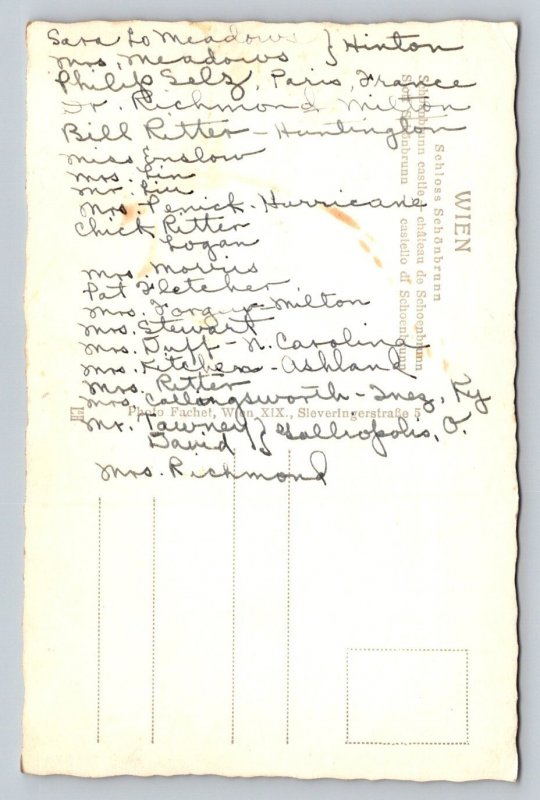 Sara Lo Meadows } Hinton
Mrs. Meadows
Philip Selz, Paris, France
Dr. Richmond Milton
Bill Ritter - Huntington
Miss Onslow
Mrs. Lin
Mr. Liu
Mrs. Penick - Hurricane
Chick Ritter
Logan
Mrs. Morris
Pat Fletcher
Mrs. Forgy - Milton
Mrs. Stewart
Mrs. Duff - N. Carolina
Mrs. Kitchen - Ashland
Mrs. Ritter
Mrs. Collongsworth - Inez, Ky
Mr. Tawney } Gallropolis, O.
David
Mrs. Richmond
WIEN
Schloss Schönbrunn
Schönbrunn castle château de Schoenbrunn
Schönbrunn castello di Schoenbrunn
Photo Fachet, Wien XIX., Sieveringerstraße 5